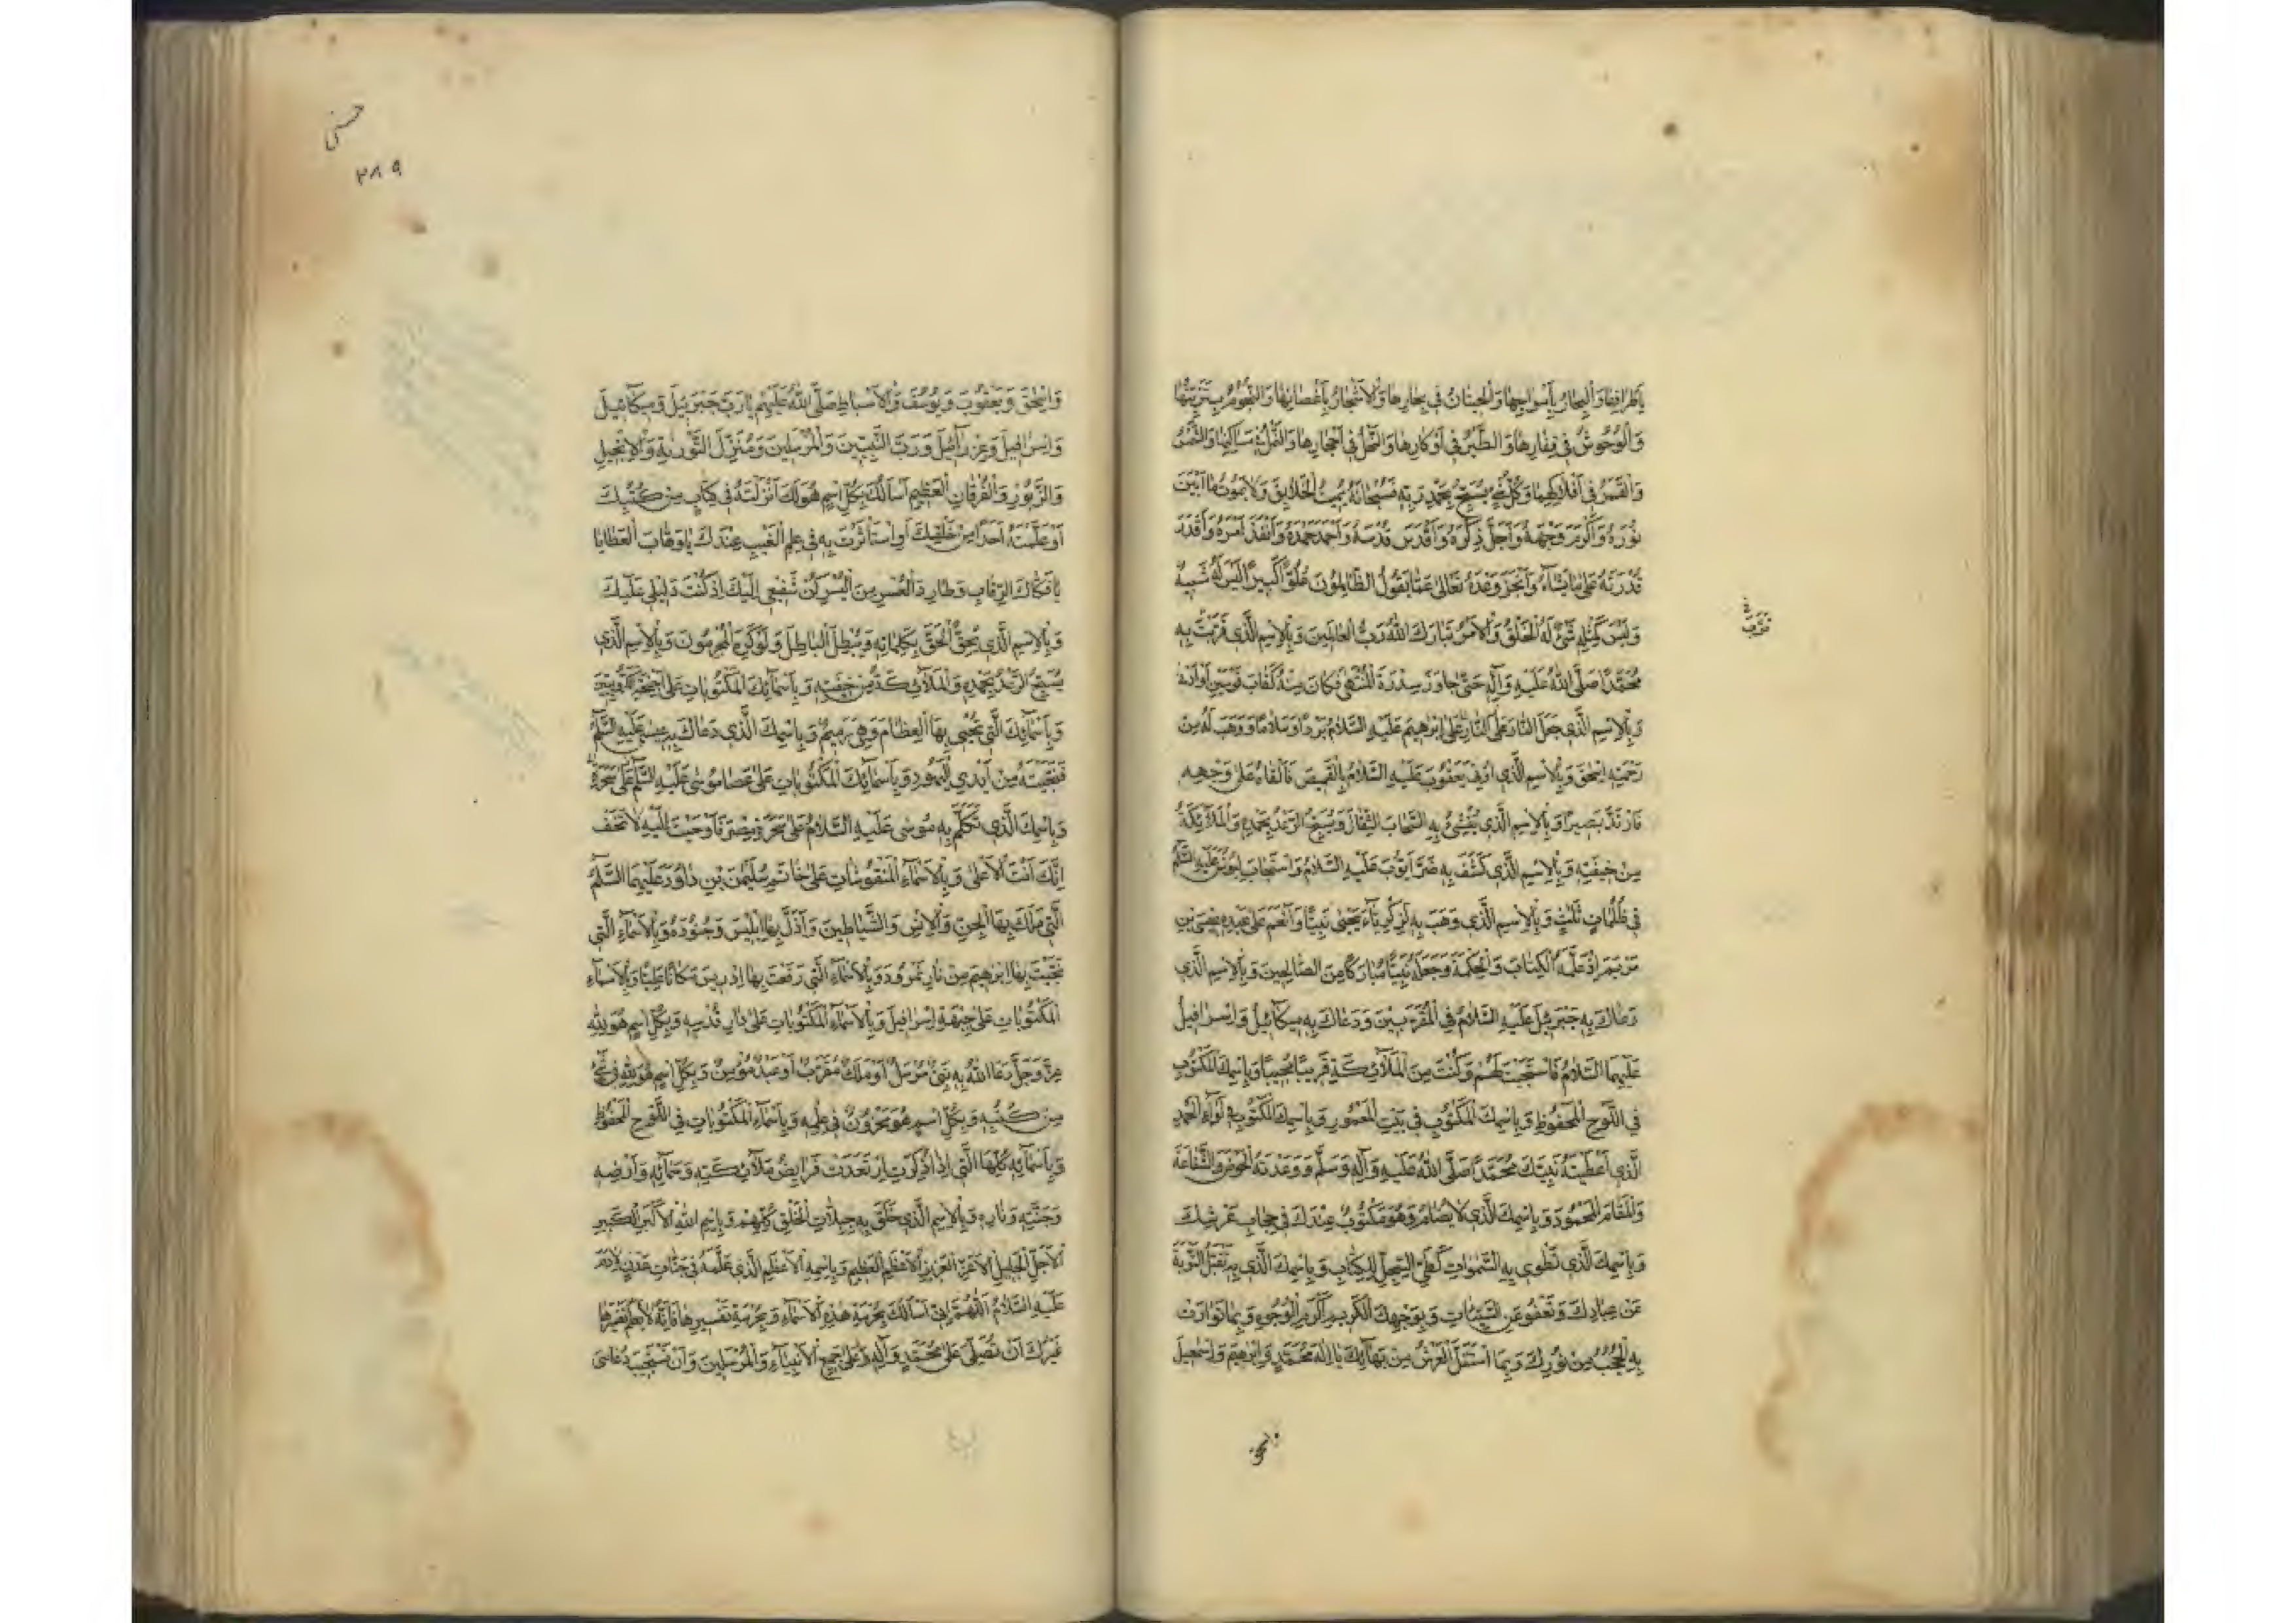 بِأَطْرَافِهَا وَالْبِحَارُ بِأَمْوَاجِهَا وَالْحِيتَانُ فِي بِحَارِهَا وَالْأَشْجَارُ بِأَغْصَانِهَا وَالنُّجُومُ بِتَزْيِينِهَا
وَالْوُحُوشُ فِي قِفَارِهَا وَالطَّيْرُ فِي أَوْكَارِهَا وَالنَّحْلُ فِي أَحْجَارِهَا وَالنَّمْلُ فِي مَسَاكِنِهَا وَالشَّمْسُ
وَالْقَمَرُ فِي أَفْلَاكِهِمَا وَكُلُّ شَيْءٍ يُسَبِّحُ بِحَمْدِ رَبِّهِ فَسُبْحَانَهُ يُمِيتُ الْخَلَائِقَ وَلَا يَمُوتُ مَا أَبْيَنَ
نُورَهُ وَأَكْرَمَ وَجْهَهُ وَأَجَلَّ ذِكْرَهُ وَأَقْدَسَ قُدْسَهُ وَأَحْمَدَ حَمْدَهُ وَأَنْفَذَ أَمْرَهُ وَأَقْدَرَ
قُدْرَتَهُ عَلَى مَا يَشَاءُ وَأَنْجَزَ وَعْدَهُ تَعَالَى عَمَّا يَقُولُ الظَّالِمُونَ عُلُوًّا كَبِيرًا لَيْسَ لَهُ شَبِيهٌ
وَلَيْسَ كَمِثْلِهِ شَيْءٌ لَهُ الْخَلْقُ وَالْأَمْرُ تَبَارَكَ اللَّهُ رَبُّ الْعَالَمِينَ وَبِالْاِسْمِ الَّذِي قَرَّبْتَ بِهِ
مُحَمَّدًا صَلَّى اللَّهُ عَلَيْهِ وَآلِهِ حَتَّى جَاوَزَ سِدْرَةَ الْمُنْتَهَى فَكَانَ مِنْهُ كَقَابِ قَوْسَيْنِ أَوْ أَدْنَى
وَبِالْاِسْمِ الَّذِي جَعَلَ النَّارَ عَلَى النَّارِ عَلَى إِبْرٰهِيمَ عَلَيْهِ السَّلَامُ بَرْدًا وَسَلَامًا وَوَهَبَ لَهُ مِنْ
رَحْمَتِهِ إِسْحٰقَ وَبِالْاِسْمِ الَّذِي أُوتِيَ يَعْقُوبَ عَلَيْهِ السَّلَامُ بِالْقَمِيصِ فَأَلْقَاهُ عَلَى وَجْهِهِ
فَارْتَدَّ بَصِيرًا وَبِالْاِسْمِ الَّذِي يُنْشِئُ بِهِ السَّحَابَ الثِّقَالَ وَيُسَبِّحُ الرَّعْدُ بِحَمْدِهِ وَالْمَلٰئِكَةُ
مِنْ خِيفَتِهِ وَبِالْاِسْمِ الَّذِي كَشَفَ بِهِ ضُرَّ أَيُّوبَ عَلَيْهِ السَّلَامُ وَاسْتَجَابَ لِيُونُسَ عَلَيْهِ السَّلَمُ
فِي ظُلُمَاتٍ ثَلٰثٍ وَبِالْاِسْمِ الَّذِي وَهَبَ بِهِ لِزَكَرِيَّاءَ يَحْيَى نَبِيًّا وَأَنْعَمَ عَلَى عَبْدِهِ عِيسَى بْنِ
مَرْيَمَ إِذْ عَلَّمَهُ الْكِتَابَ وَالْحِكْمَةَ وَجَعَلَهُ نَبِيًّا مُبَارَكًا مِنَ الصَّالِحِينَ وَبِالْاِسْمِ الَّذِي
دَعَاكَ بِهِ جَبْرَئِيلُ عَلَيْهِ السَّلَامُ فِي الْمُقَرَّبِينَ وَدَعَاكَ بِهِ مِيكَائِيلُ وَإِسْرَافِيلُ
عَلَيْهِمَا السَّلَامُ فَاسْتَجَبْتَ لَهُمْ وَكُنْتَ مِنَ الْمَلَائِكَةِ قَرِيبًا مُجِيبًا وَبِاسْمِكَ الْمَكْتُوبِ
فِي اللَّوْحِ الْمَحْفُوظِ وَبِاسْمِكَ الْمَكْتُوبِ فِي بَيْتِ الْمَعْمُورِ وَبِاسْمِكَ الْمَكْتُوبِ فِي لِوَاءِ الْحَمْدِ
الَّذِي أَعْطَيْتَهُ نَبِيَّكَ مُحَمَّدًا صَلَّى اللَّهُ عَلَيْهِ وَآلِهِ وَسَلَّمَ وَوَعَدْتَهُ الْحَوْضَ وَالشَّفَاعَةَ
وَالْمَقَامَ الْمَحْمُودَ وَبِاسْمِكَ الَّذِي لَا يُضَامُ وَهُوَ مَكْتُوبٌ عِنْدَكَ فِي حِجَابِ عَرْشِكَ
وَبِاسْمِكَ الَّذِي تَطْوِي بِهِ السَّمٰوَاتِ كَطَيِّ السِّجِلِّ لِلْكِتَابِ وَبِاسْمِكَ الَّذِي بِهِ تَقْبَلُ التَّوْبَةَ
عَنْ عِبَادِكَ وَتَعْفُو عَنِ السَّيِّئَاتِ وَبِوَجْهِكَ الْكَرِيمِ أَكْرَمِ الْوُجُوهِ وَبِمَا تَوَارَتْ
بِهِ الْحُجُبُ مِنْ نُورِكَ وَبِمَا اسْتَقَلَّ الْعَرْشُ مِنْ بَهَائِكَ يَا إِلٰهَ مُحَمَّدٍ وَإِبْرٰهِيمَ وَإِسْمٰعِيلَ
حسنى
٢٨٩
وَإِسْحٰقَ وَيَعْقُوبَ وَيُوسُفَ وَالْأَسْبَاطِ صَلَّى اللَّهُ عَلَيْهِمْ يَا رَبَّ جَبْرَئِيلَ وَمِيكَائِيلَ
وَإِسْرَافِيلَ وَعِزْرَائِيلَ وَرَبَّ النَّبِيِّينَ وَالْمُرْسَلِينَ وَمُنْزِلَ التَّوْرٰيةِ وَالْإِنْجِيلِ
وَالزَّبُورِ وَالْفُرْقَانِ الْعَظِيمِ أَسْأَلُكَ بِكُلِّ اسْمٍ هُوَ لَكَ أَنْزَلْتَهُ فِي كِتَابٍ مِنْ كُتُبِكَ
أَوْ عَلَّمْتَهُ أَحَدًا مِنْ خَلْقِكَ أَوِ اسْتَأْثَرْتَ بِهِ فِي عِلْمِ الْغَيْبِ عِنْدَكَ يَا وَهَّابَ الْعَطَايَا
يَا فَكَّاكَ الرِّقَابِ وَطَارِدَ الْعُسْرِ مِنَ الْيُسْرِ كُنْ شَفِيعِي إِلَيْكَ إِذْ كُنْتَ دَلِيلِي عَلَيْكَ
وَبِالْاِسْمِ الَّذِي يُحِقُّ الْحَقَّ بِكَلِمَاتِهِ وَيُبْطِلُ الْبَاطِلَ وَلَوْ كَرِهَ الْمُجْرِمُونَ وَبِالْاِسْمِ الَّذِي
يُسَبِّحُ الرَّعْدُ بِحَمْدِهِ وَالْمَلَائِكَةُ مِنْ خِيفَتِهِ وَبِأَسْمَائِكَ الْمَكْتُوبَاتِ عَلَى أَجْنِحَةِ الْكَرُوبِيِّينَ
وَبِأَسْمَائِكَ الَّتِي تُحْيِي بِهَا الْعِظَامَ وَهِيَ رَمِيمٌ وَبِاسْمِكَ الَّذِي دَعَاكَ بِهِ عِيسَى عَلَيْهِ السَّلَمُ
فَنَجَّيْتَهُ مِنْ أَيْدِي الْيَهُودِ وَبِأَسْمَائِكَ الْمَكْتُوبَاتِ عَلَى عَصَا مُوسَى عَلَيْهِ السَّلَمُ عَلَى سَحَرَةِ
وَبِاسْمِكَ الَّذِي تَكَلَّمَ بِهِ مُوسَى عَلَيْهِ السَّلَامُ عَلَى سَحَرَةِ مِصْرَ فَأَوْحَيْتَ إِلَيْهِ لَا تَخَفْ
إِنَّكَ أَنْتَ الْأَعْلَى وَبِالْأَسْمَاءِ الْمَنْقُوشَاتِ عَلَى خَاتَمِ سُلَيْمٰنَ بْنِ دَاوُدَ عَلَيْهِمَا السَّلَمُ
الَّتِي مَلَكَ بِهَا الْجِنَّ وَالْإِنْسَ وَالشَّيَاطِينَ وَأَذَلَّ بِهَا إِبْلِيسَ وَجُنُودَهُ وَبِالْأَسْمَاءِ الَّتِي
نَجَّيْتَ بِهَا إِبْرٰهِيمَ مِنْ نَارِ نَمْرُودَ وَبِالْأَسْمَاءِ الَّتِي رَفَعْتَ بِهَا إِدْرِيسَ مَكَانًا عَلِيًّا وَبِالْأَسْمَاءِ
الْمَكْتُوبَاتِ عَلَى جَبْهَةِ إِسْرَافِيلَ وَبِالْأَسْمَاءِ الْمَكْتُوبَاتِ عَلَى دَارِ قُدْسِهِ وَبِكُلِّ اسْمٍ هُوَ لِلّٰهِ
عَزَّ وَجَلَّ دَعَا اللَّهَ بِهِ نَبِيٌّ مُرْسَلٌ أَوْ مَلَكٌ مُقَرَّبٌ أَوْ عَبْدٌ مُؤْمِنٌ وَبِكُلِّ اسْمٍ هُوَ لِلّٰهِ فِي
مِنْ كُتُبِهِ وَبِكُلِّ اسْمٍ هُوَ مَخْزُونٌ فِي عِلْمِهِ وَبِأَسْمَاءِ الْمَكْتُوبَاتِ فِي اللَّوْحِ الْمَحْفُوظِ
وَبِأَسْمَائِهِ كُلِّهَا الَّتِي إِذَا ذُكِرَتِ ارْتَعَدَتْ فَرَائِضُ مَلَائِكَتِهِ وَسَمَائِهِ وَأَرْضِهِ
وَجَنَّتِهِ وَنَارِهِ وَبِالْاِسْمِ الَّذِي خَلَقَ بِهِ جِبِلَّاتِ الْخَلْقِ كُلِّهِمْ وَبِاسْمِ اللَّهِ الْأَكْبَرِ الْكَبِيرِ
الْأَجَلِّ الْجَلِيلِ الْأَعَزِّ الْعَزِيزِ الْأَعْظَمِ الْعَظِيمِ وَبِاسْمِهِ الْأَعْظَمِ الَّذِي عَلَّمَهُ فِي جَنَّاتِ عَدْنٍ لِآدَمَ
عَلَيْهِ السَّلَامُ اللّٰهُمَّ إِنِّي أَسْأَلُكَ بِحُرْمَةِ هٰذِهِ الْأَسْمَاءِ وَبِحُرْمَةِ تَفْسِيرِهَا فَإِنَّهُ لَا يَعْلَمُ تَفْسِيرَهَا
غَيْرُكَ أَنْ تُصَلِّيَ عَلَى مُحَمَّدٍ وَآلِهِ وَعَلَى جَمِيعِ الْأَنْبِيَاءِ وَالْمُرْسَلِينَ وَأَنْ تَسْتَجِيبَ دُعَائِي